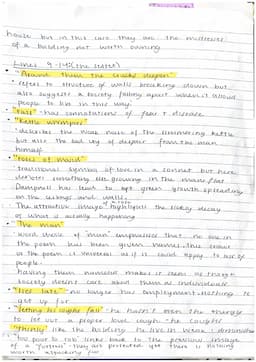 house but in this case they are the mistresses
of a building not worth owning
Lines 9-14 (the states)
"Around them the cracks deepen"
- refers to structure of walls breaking down but
also suggests a society falling apart when it allows
people to live in this way.
has connotations of fear + disease
"Kettle whimpers"
- describes the weak noise of the simmering kettle
but also the sad cry of despair from the man
himself
"roses of mould"
- traditional symbol of love in a sonnet but here
denotes something else growing in the mans flat
Dampness has lead to soft green growth spreading
on the ceilings and walls.
The attractive image highlights the sickly decay
of what is actually happening
"The man"
- word choice of 'man' emphasises that no one in
the poem has been given names. This
the poem is universal as if it could apply to lots of
people.
having them nameless makes it seem as though
society doesn't care about them as individuals
"lies late" no longer has employment. Nothing to
get up for
"letting his coughs fall" he hasn't even the energy
to let out a proper loud cough, he coughs
"thinly" like the building he lives in weak + diminished
"too poor to rob" links back to the previous image
of a "fortress" they are protected yet there is nothing
worth